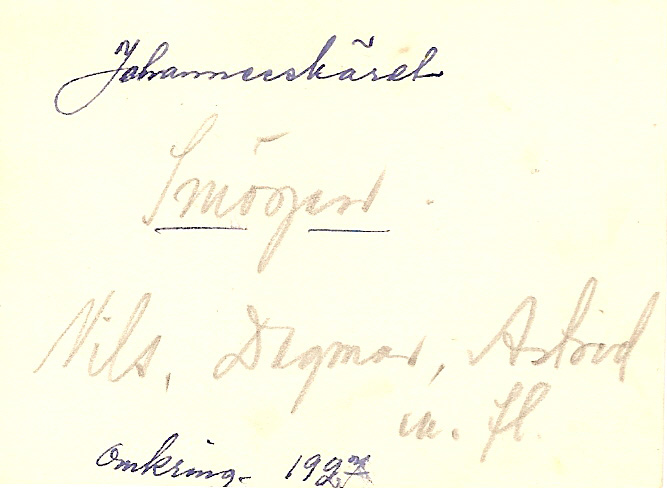 Johannesskäret
Smögen.
Nils, Dagmar, Astrid
m. fl.
Omkring 1927